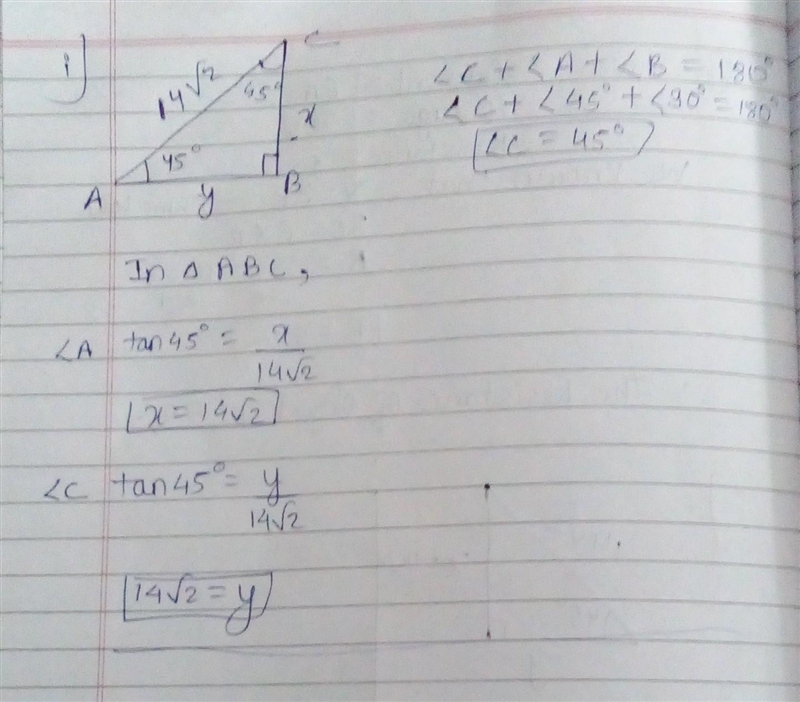 i)
C
14√2
45°
x
45°
A
y
B
∠C + ∠A + ∠B = 180°
∠C + ∠45° + ∠90° = 180°
∠C = 45°
In △ ABC,
∠A tan45° = x/14√2
x = 14√2
∠C tan45° = y/14√2
14√2 = y